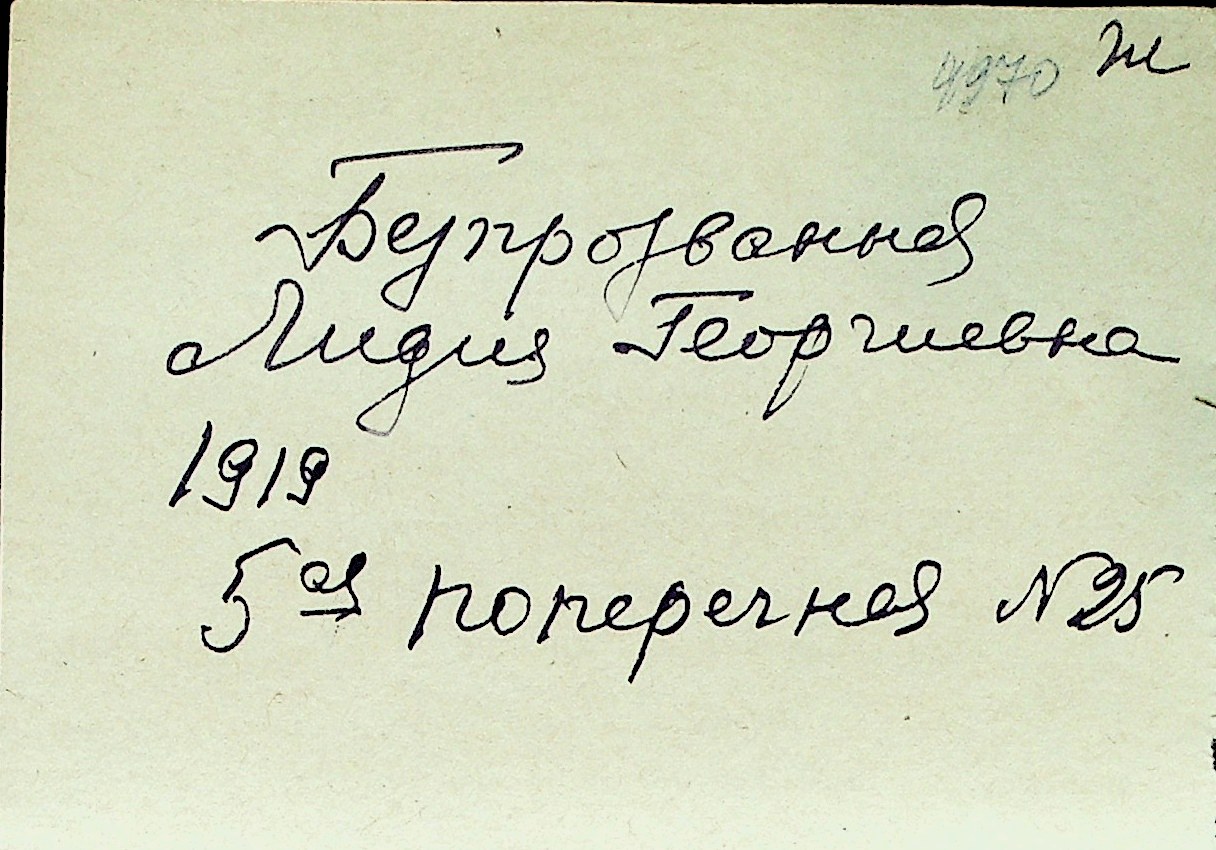 4970 Ж
Безпрозванная
Лидия Георгиевна
1919
5ая поперечная №25